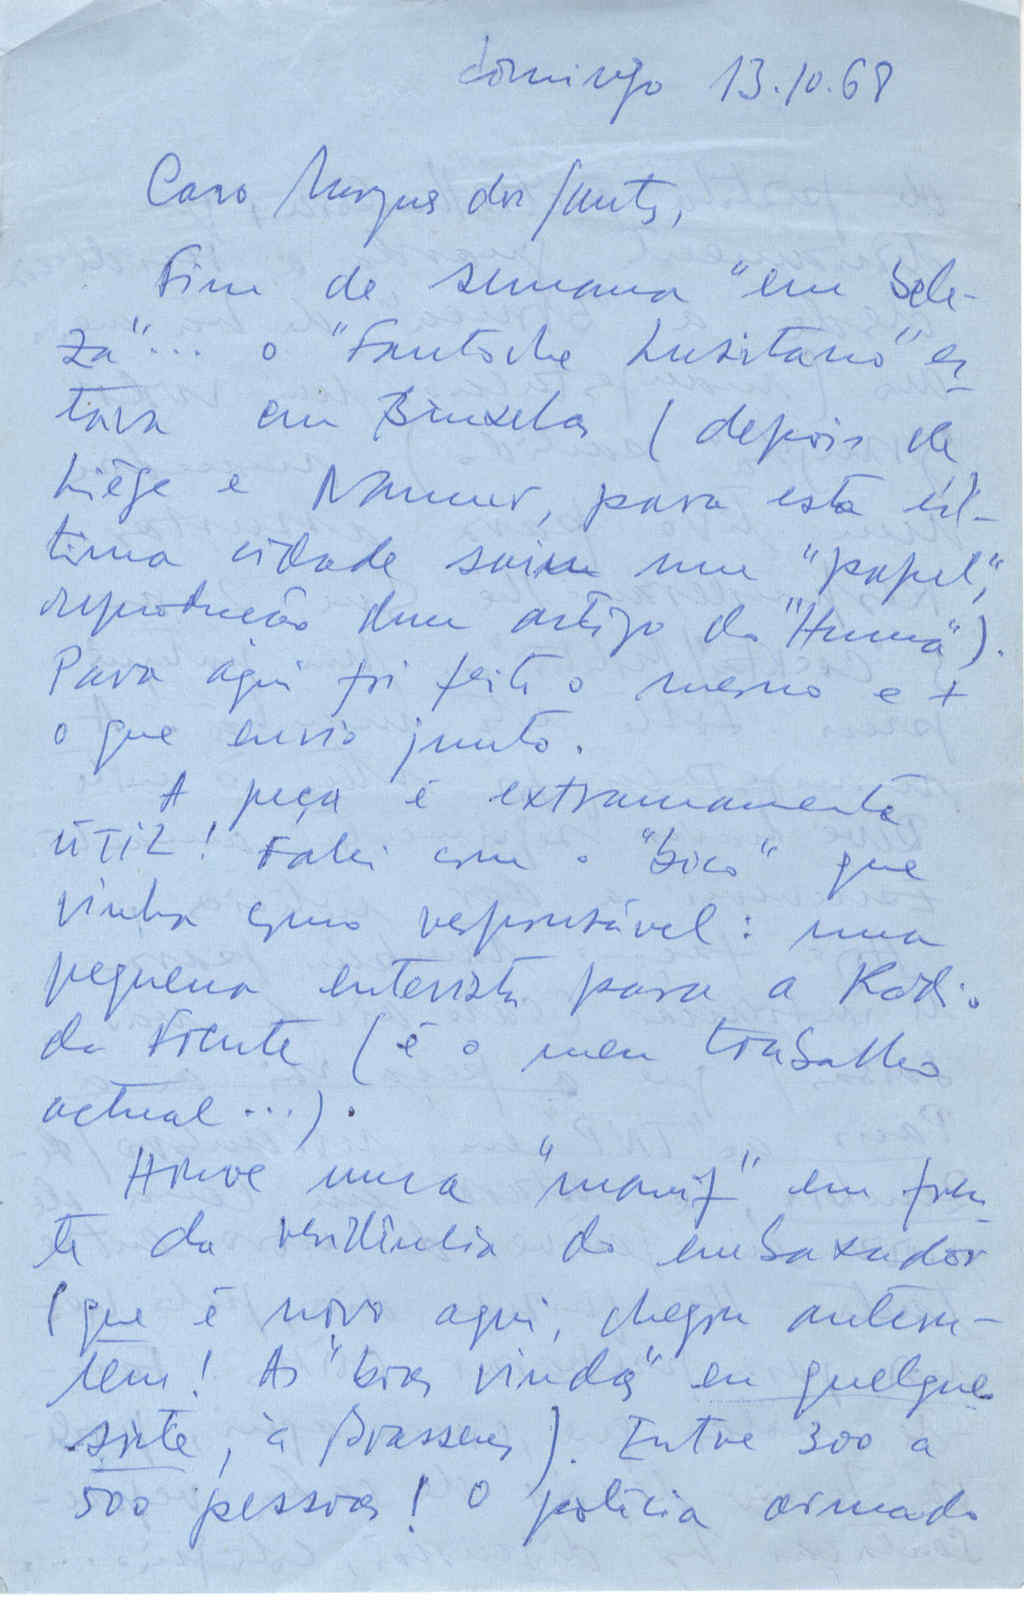 domingo 13.10.68
Caro Marques dos Santos,
Fim de semana "em bele-
za"... o "Fantoche Lusitano" es-
tava em Bruxelas (depois de
Liège e Namur, para esta úl-
tima cidade saiu um "papel",
reprodução dum artigo do "Huma").
Para aqui foi feito o mesmo e +
o que envio junto.
A peça é extramamente
ÚTIL! Falei com o "bico" que
vinha como responsável: uma
pequena entrevista para a Rádio
da Frente (é o meu trabalho
actual...).
Houve uma "manif" em fren-
te da residência do embaxador
(que é novo aqui, chegou anteon-
tem! As "boas vindas" en quelque
sorte, à Brassens). Entre 300 a
500 pessoas! O polícia armado